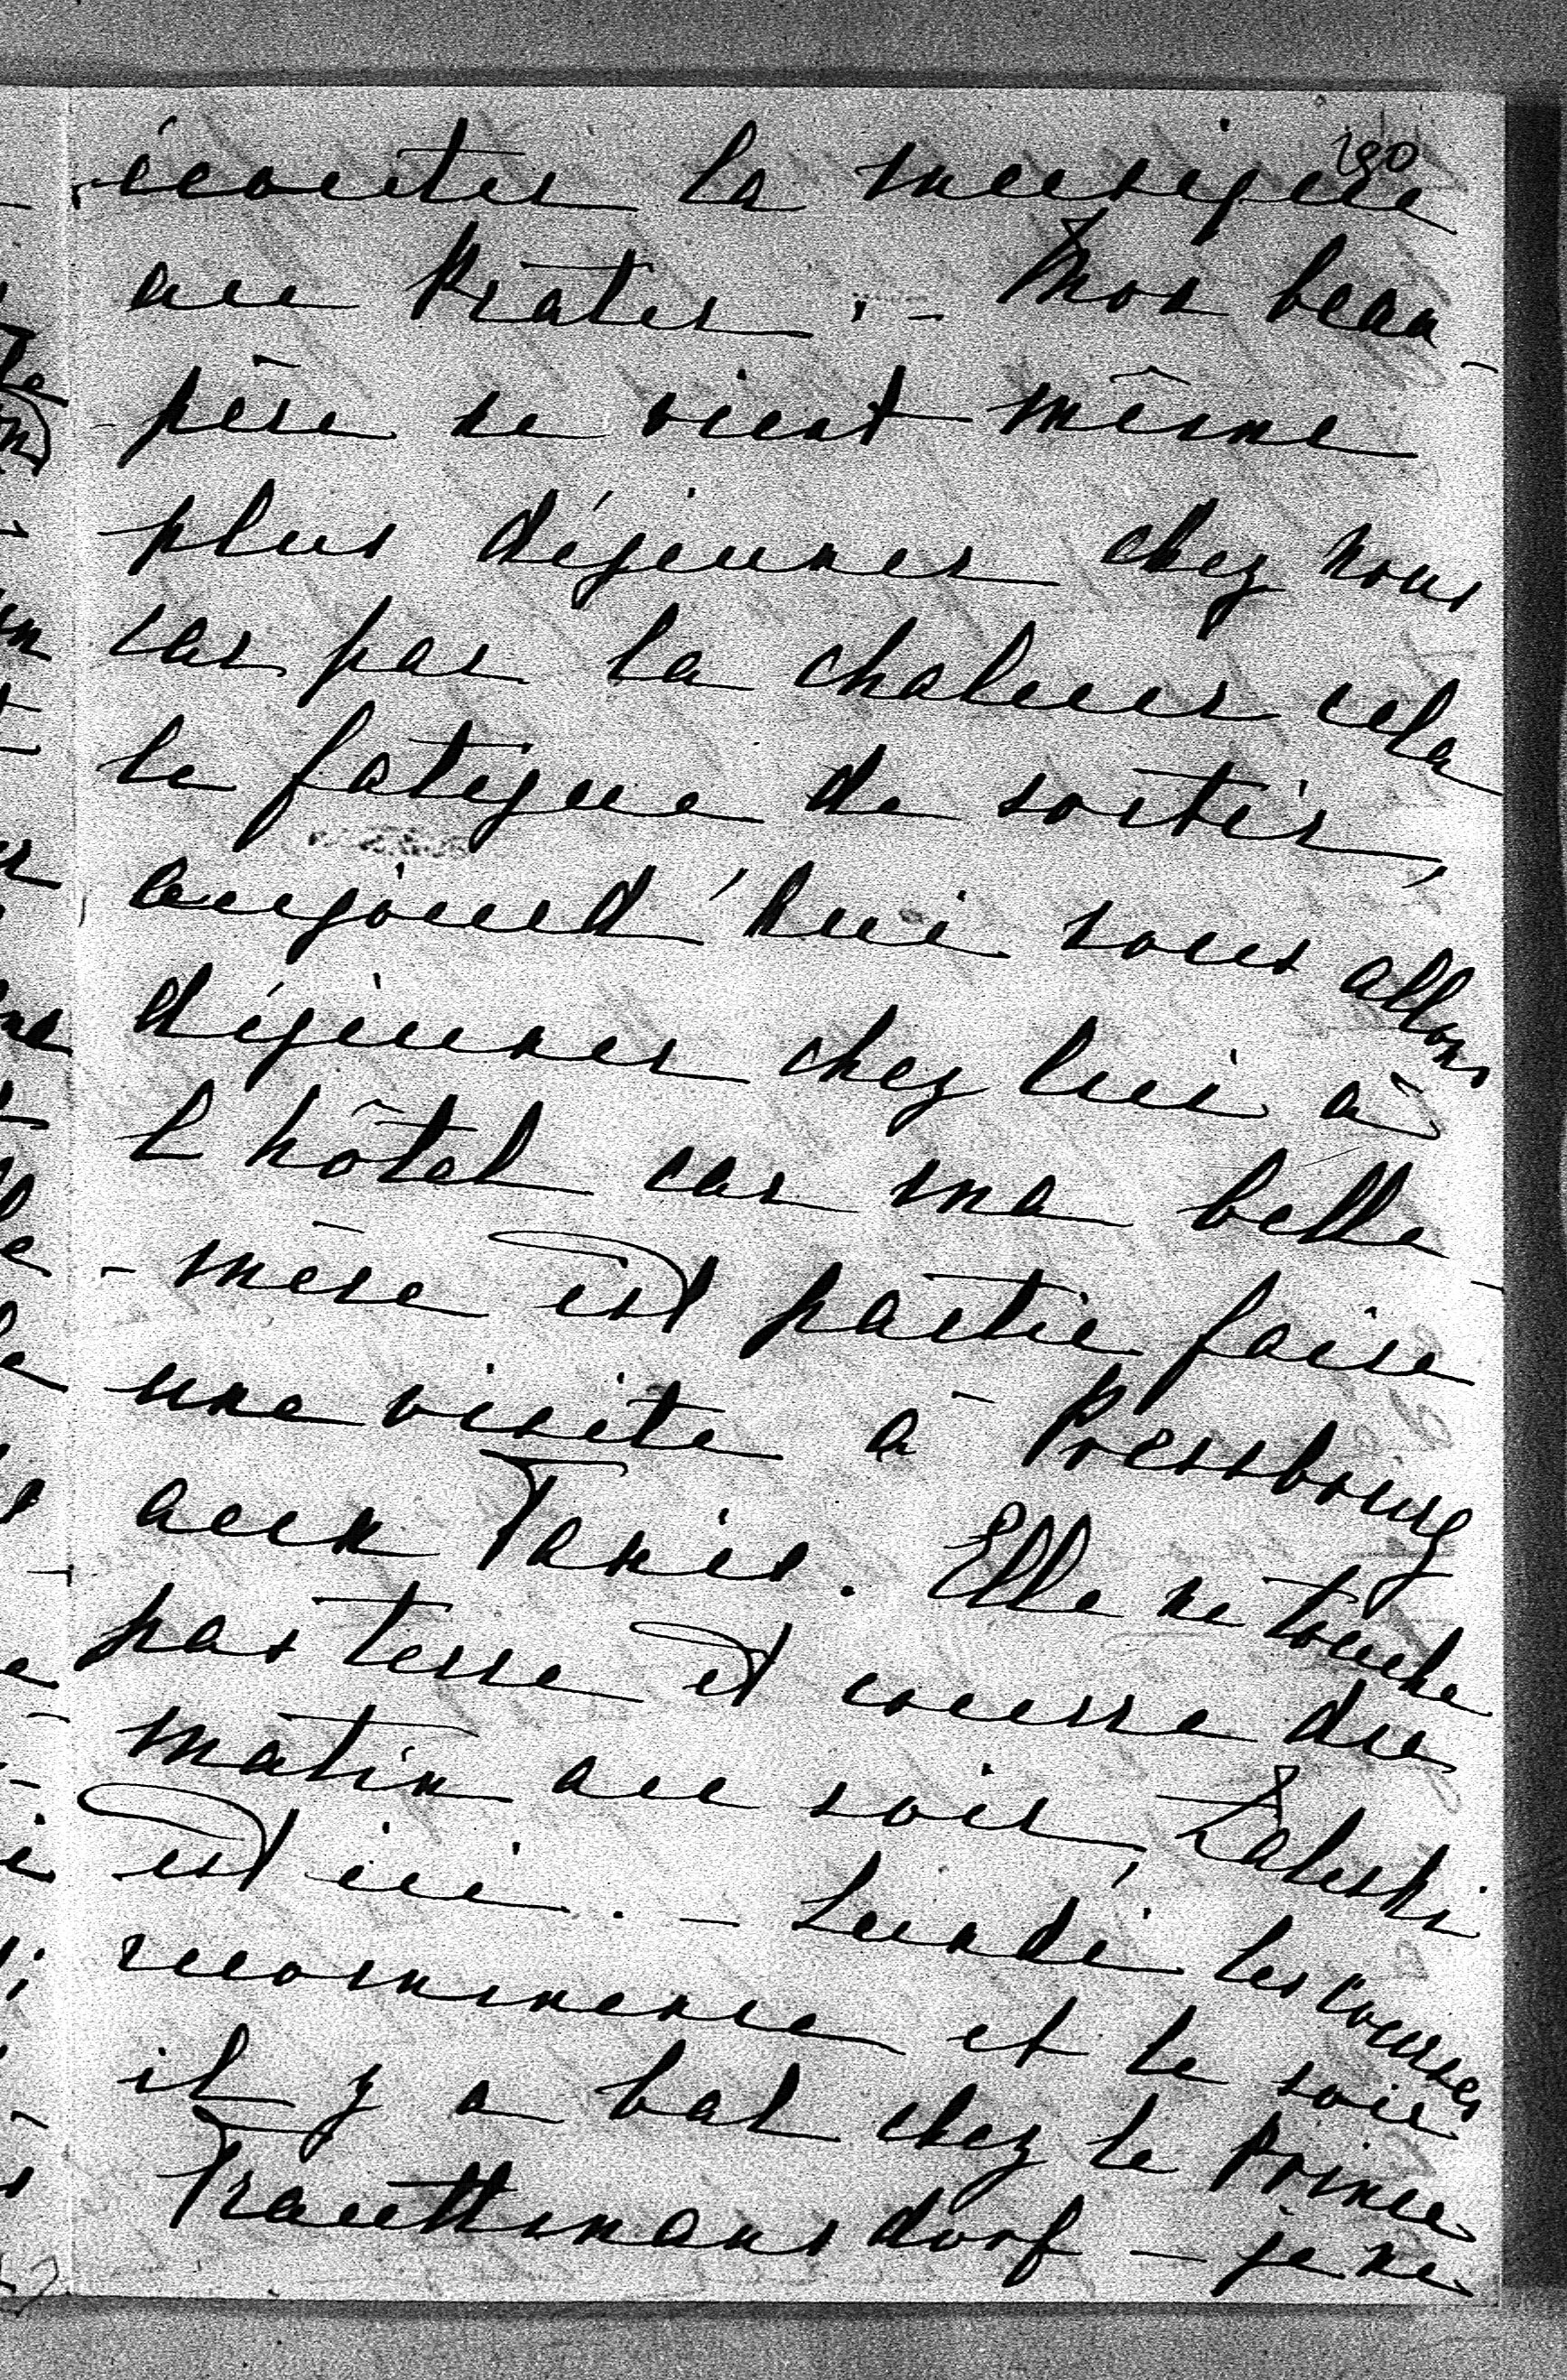 190
écouter la musique
au Prater. – Mon beau-
-père ne vient même
plus déjeuner chez nous
car par la chaleur cela
le fatigue de sortir,
aujourd'hui nous allons
déjeuner chez lui à
l'hôtel car ma belle-
-mère est partie faire
une visite à Pressbourg
aux Taxis. Elle ne touche
pas terre et courre du
matin au soir, Zaleski
est ici. – Lundi les courses
recommence et le soir
il y a bal chez le Prince
Trauttmansdorf – je ne